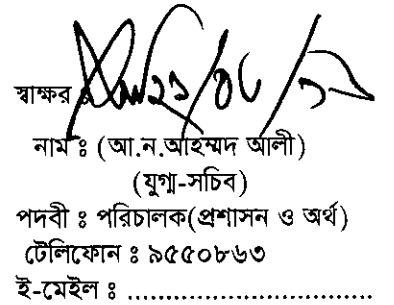 স্বাক্ষর ঃ
নাম ঃ (আ.ন.আহম্মদ আলী)
(যুগ্ম-সচিব)
পদবী ঃ পরিচালক(প্রশাসন ও অর্থ)
টেলিফোন ঃ ৯৫৫০৮৬৩
ই-মেইল ঃ ................................